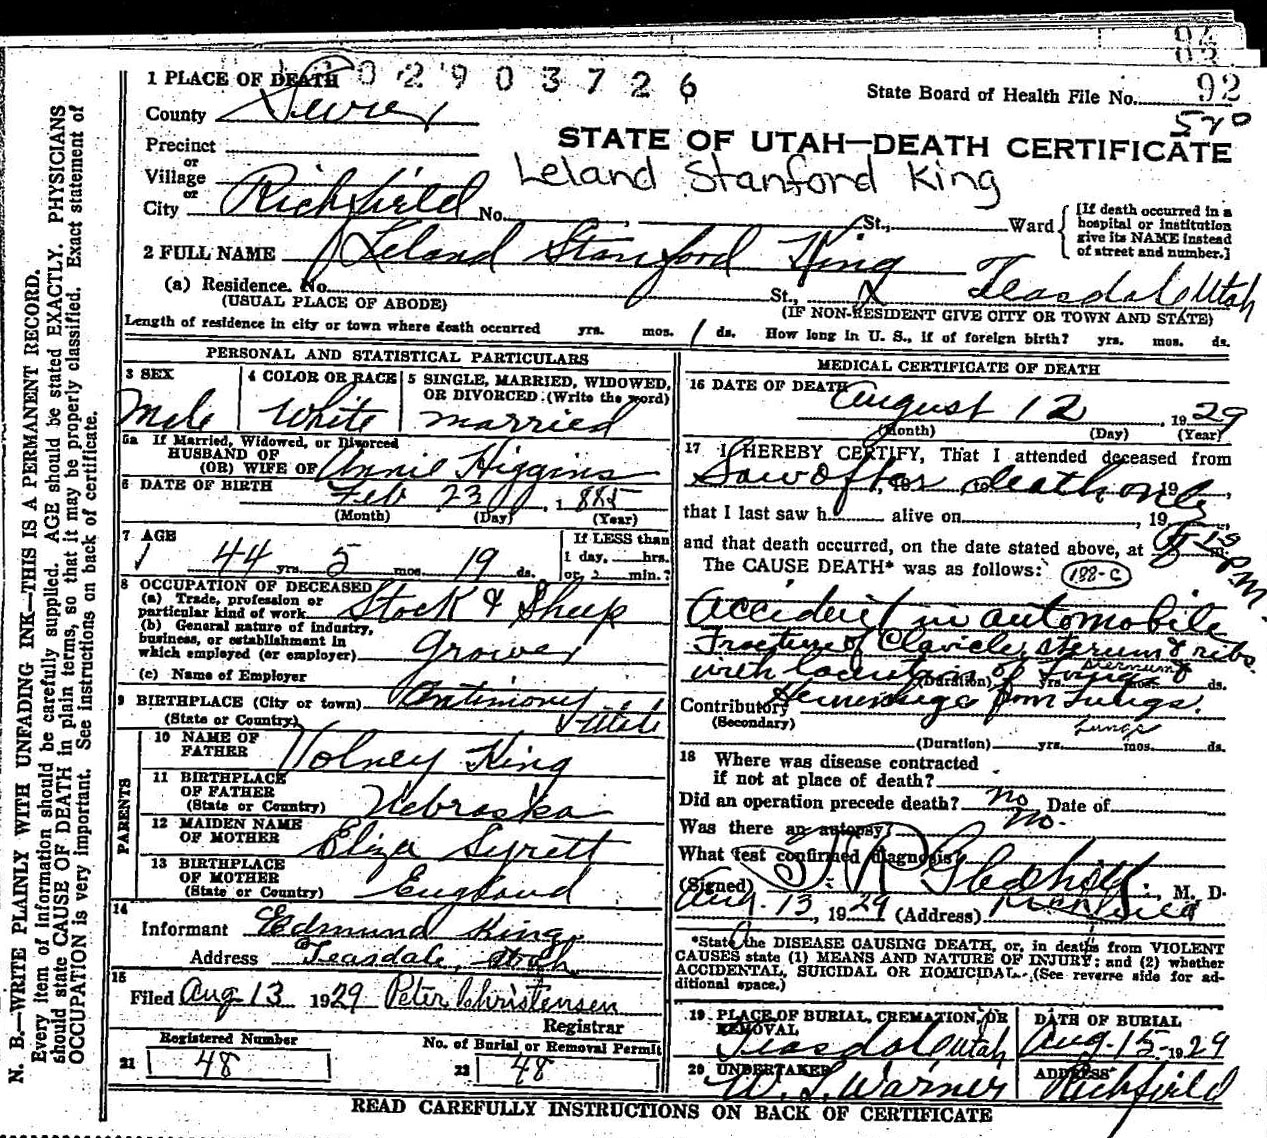 94
03
92
1 PLACE OF DEATH 02903726
State Board of Health File No. 92
County Sevier
570
STATE OF UTAH—DEATH CERTIFICATE
Leland Stanford King
Precinct
or
Village
or
City Richfield No. St., Ward
[If death occurred in a hospital or institution give its NAME instead of street and number.]
2 FULL NAME Leland Stanford King
(a) Residence. No. St., Teasdale Utah
(USUAL PLACE OF ABODE) (IF NON-RESIDENT GIVE CITY OR TOWN AND STATE)
Length of residence in city or town where death occurred yrs. mos. 1 ds. How long in U. S., if of foreign birth? yrs. mos. ds.
PERSONAL AND STATISTICAL PARTICULARS
3 SEX Male
4 COLOR OR RACE White
5 SINGLE, MARRIED, WIDOWED, OR DIVORCED (Write the word) married
5a If Married, Widowed, or Divorced
HUSBAND OF
(OR) WIFE OF Annie Higgins
6 DATE OF BIRTH Feb 23, 1885
(Month) (Day) (Year)
7 AGE 44 yrs. 5 mos. 19 ds.
If LESS than
1 day, hrs.
or min.?
8 OCCUPATION OF DECEASED
(a) Trade, profession or
particular kind of work Stock & Sheep
(b) General nature of industry,
business, or establishment in
which employed (or employer) Grower
(c) Name of Employer
9 BIRTHPLACE (City or town) Antimony
(State or Country) Utah
PARENTS
10 NAME OF
FATHER Volney King
11 BIRTHPLACE
OF FATHER
(State or Country) Nebraska
12 MAIDEN NAME
OF MOTHER Eliza Syrett
13 BIRTHPLACE
OF MOTHER
(State or Country) England
14
Informant Edmund King
Address Teasdale, Utah
15
Filed Aug 13 1929 Peter Christensen
Registrar
Registered Number
21 48
No. of Burial or Removal Permit
22 48
MEDICAL CERTIFICATE OF DEATH
16 DATE OF DEATH August 12, 1929
(Month) (Day) (Year)
17 I HEREBY CERTIFY, That I attended deceased from
Saw after death only
that I last saw h alive on , 19 ,
and that death occurred, on the date stated above, at P.M.
The CAUSE DEATH* was as follows: 188-C
Accident in automobile
Fracture of Clavicle, sterum & ribs
sternum
with laceration of lungs &
(Duration) yrs. mos. ds.
Contributory Hemorrhage from Lungs.
(Secondary)
Lungs
(Duration) yrs. mos. ds.
18 Where was disease contracted
if not at place of death?
Did an operation precede death? no Date of
Was there an autopsy? no.
What test confirmed diagnosis?
(Signed) Gledhill, M. D.
Aug. 13, 1929 (Address) Richfield
*State the DISEASE CAUSING DEATH, or, in deaths from VIOLENT
CAUSES state (1) MEANS AND NATURE OF INJURY; and (2) whether
ACCIDENTAL, SUICIDAL OR HOMICIDAL. (See reverse side for ad-
ditional space.)
19 PLACE OF BURIAL, CREMATION, OR
REMOVAL
Teasdale Utah
DATE OF BURIAL
Aug. 15 1929
20 UNDERTAKER
W. L. Warner
ADDRESS
Richfield
READ CAREFULLY INSTRUCTIONS ON BACK OF CERTIFICATE
N. B.—WRITE PLAINLY WITH UNFADING INK—THIS IS A PERMANENT RECORD.
Every item of information should be carefully supplied. AGE should be stated EXACTLY. PHYSICIANS
should state CAUSE OF DEATH in plain terms, so that it may be properly classified. Exact statement of
OCCUPATION is very important. See instructions on back of certificate.